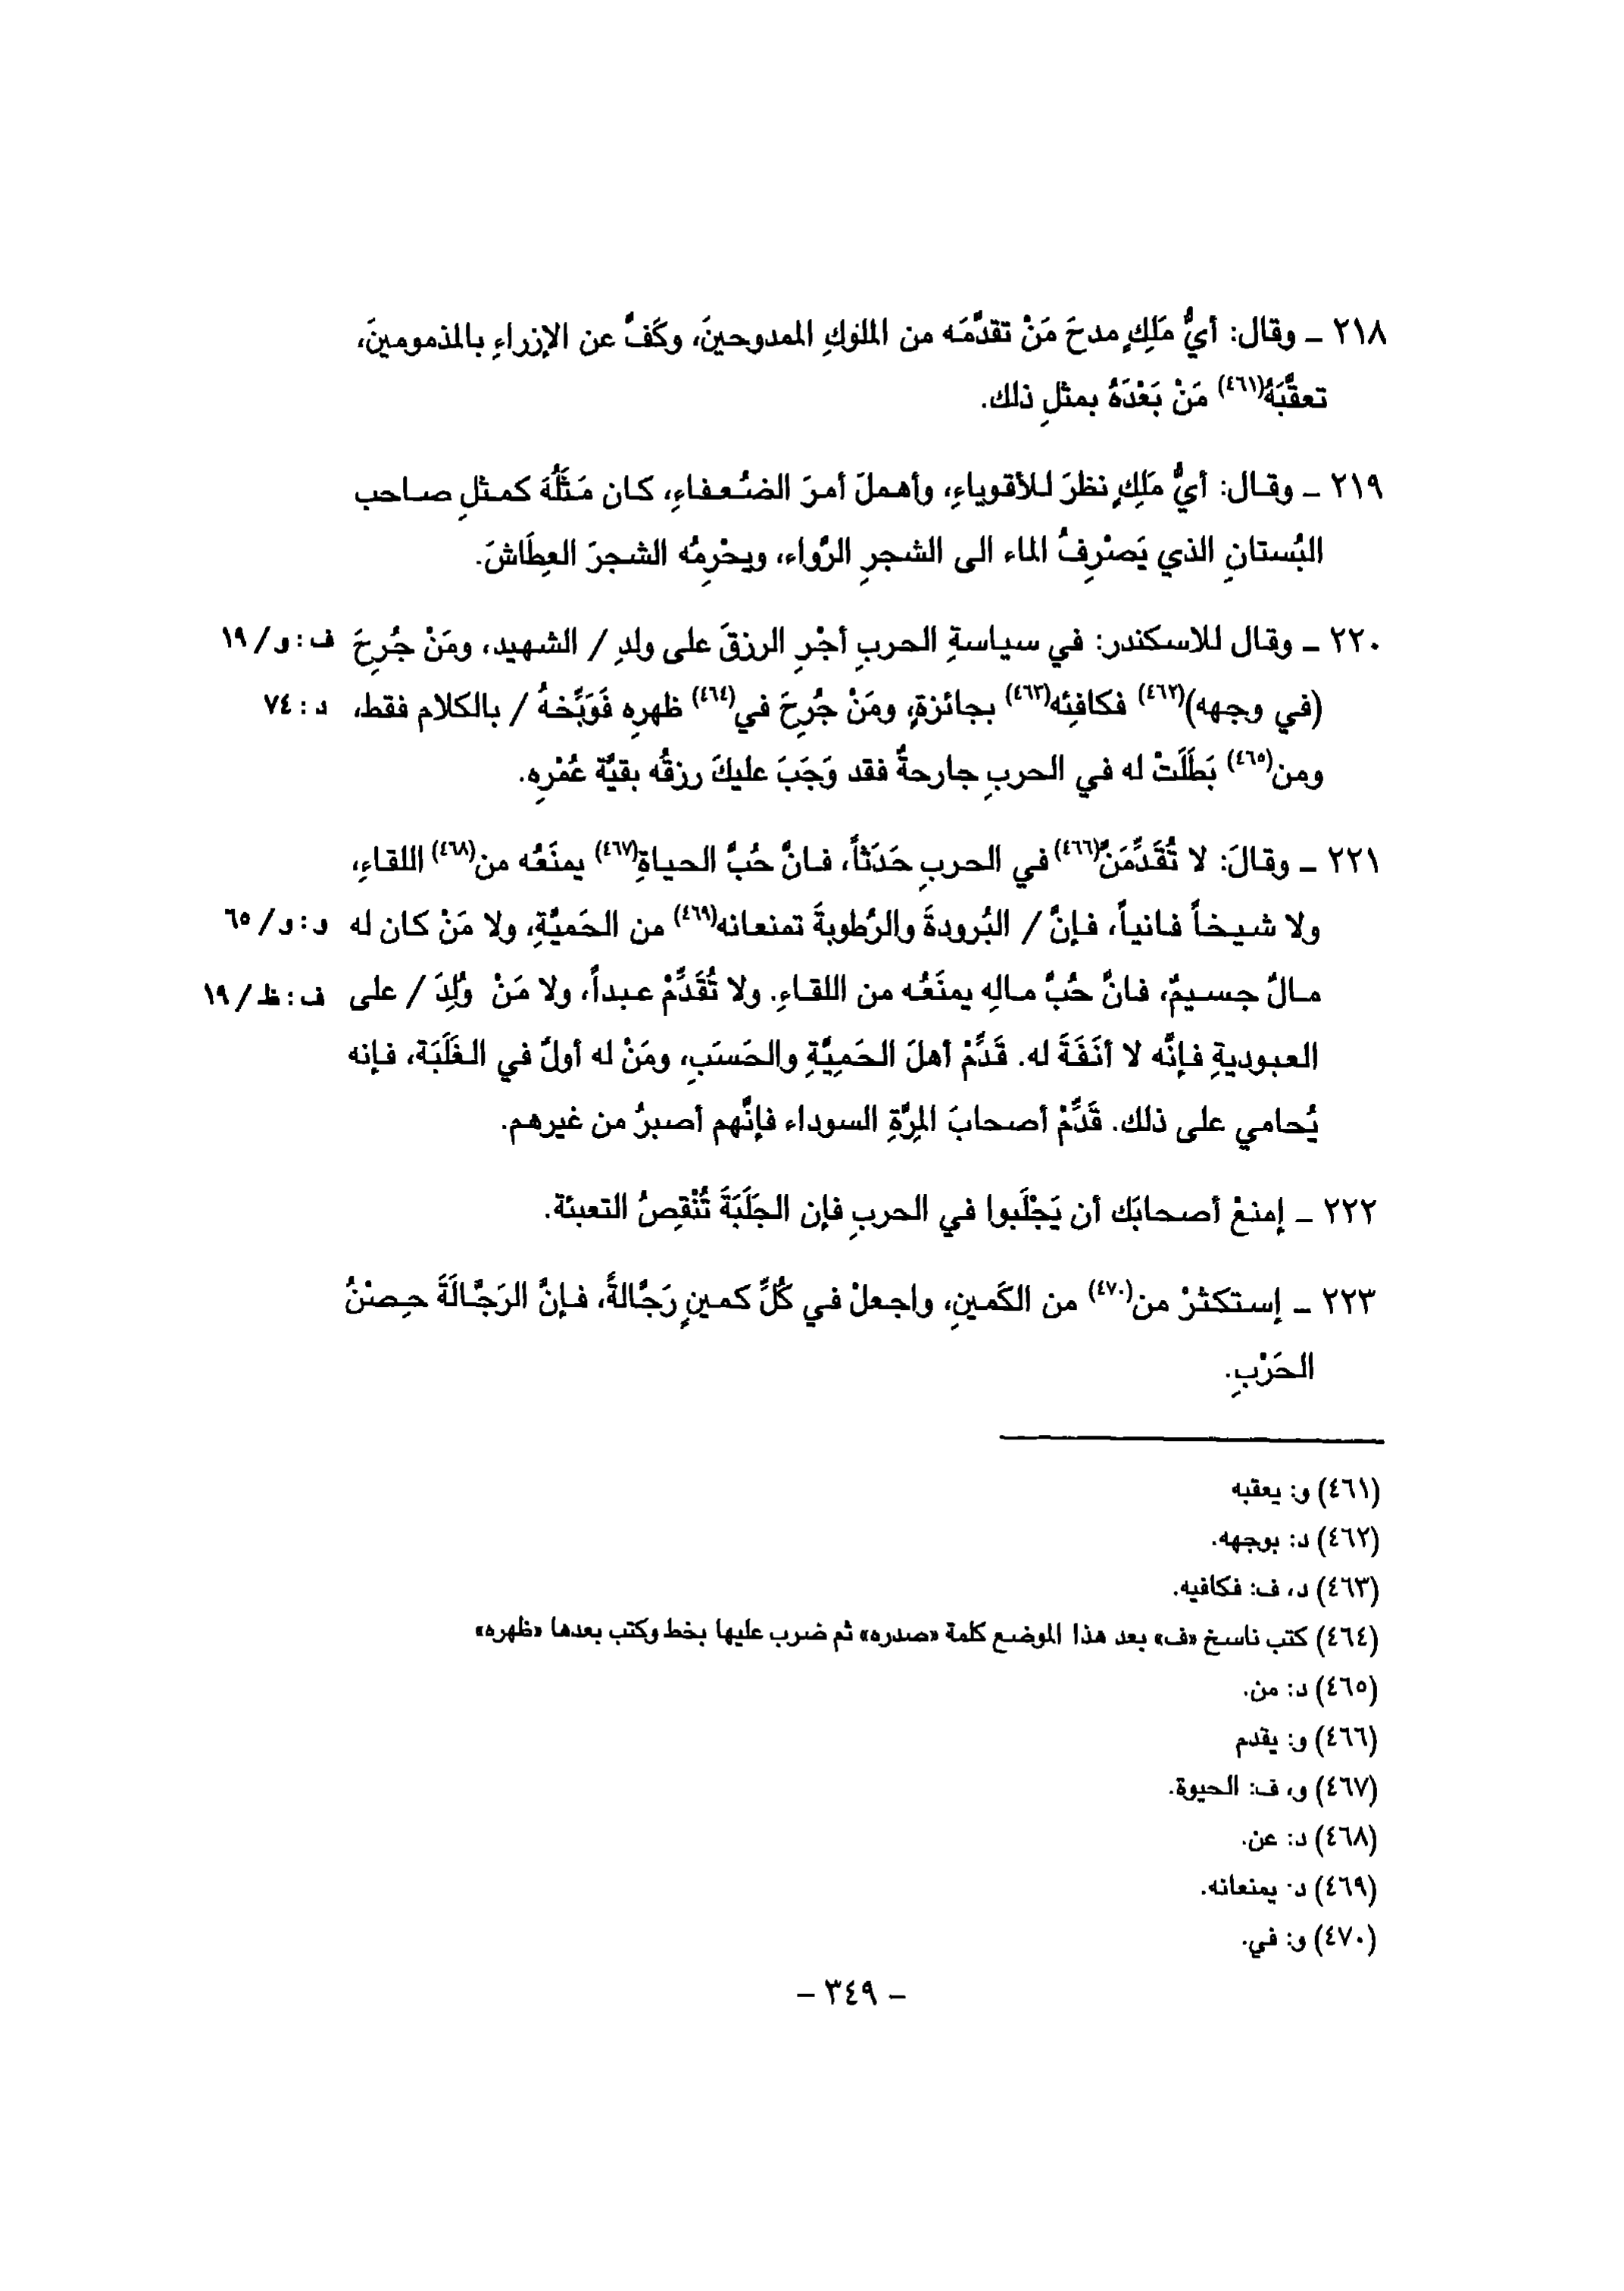 ٢١٨ ـ وقال: أيُّ مَلَكٍ مدحَ مَنْ تقدَّمَه من الملوكِ الممدوحينَ، وكَفَّ عن الإزراءِ بالمذمومينَ،
تعقَّبَهُ(٤٦١) مَنْ بَعْدَهُ بمثلِ ذلك.
٢١٩ ـ وقال: أيُّ مَلَكٍ نظرَ للأقوياءِ، وأهملَ أمرَ الضُعفاءِ، كان مَثَلُهَ كمثلِ صاحب
البُستانِ الذي يَصْرِفُ الماء الى الشجرِ الرَّواء، ويحْرِمُه الشجرَ العِطَاشَ.
٢٢٠ ـ وقال للاسكندر: في سياسةِ الحربِ أجْرِ الرزقَ على ولدِ / الشهيد، ومَنْ جُرِحَ ف: و/ ١٩
(في وجهه)(٤٦٢) فكافئِه(٤٦٣) بجائزةٍ، ومَنْ جُرِحَ في(٤٦٤) ظهرِه فَوَبِّخهُ / بالكلام فقط، د: ٧٤
ومن(٤٦٥) بَطَلَتْ له في الحربِ جارحةٌ فقد وَجَبَ عليكَ رزقُه بقيَّة عُمْرِه.
٢٢١ ـ وقالَ: لا تُقَدِّمَنَّ(٤٦٦) في الحربِ حَدَثاً، فانَّ حُبَّ الحياةِ(٤٦٧) يمنَعُه من(٤٦٨) اللقاءِ،
ولا شيخاً فانياً، فإنَّ / البُرودةَ والرُطوبةَ تمنعانه(٤٦٩) من الحَميَّةِ، ولا مَنْ كان له و: و/ ٦٥
مالٌ جسيمٌ، فانَّ حُبَّ مالِه يمنَعُه من اللقاءِ. ولا تُقَدِّمْ عبداً، ولا مَنْ وُلِدَ / على ف: ظ/ ١٩
العبوديةِ فإنَّه لا أنَفَةَ له. قَدِّمْ أهلَ الحَمِيَّةِ والحَسَبِ، ومَنْ له أولٌ في الغَلَبَة، فإنه
يُحامي على ذلك. قَدِّمْ أصحابَ المِرَّةِ السوداء فإنَّهم أصبرُ من غيرهم.
٢٢٢ ـ إمنعْ أصحابَك أن يَجْلَبوا في الحربِ فإن الجَلَبَةَ تُنْقِصُ التعبئة.
٢٢٣ ـ إستكثرْ من(٤٧٠) من الكَمينِ، واجعلْ في كُلِّ كمينٍ رَجَّالةً، فإنَّ الرَجَّالَةَ حِصْنُ
الحَرْبِ.
(٤٦١) و: يعقبه
(٤٦٢) د: بوجهه.
(٤٦٣) د، ف: فكافيه.
(٤٦٤) كتب ناسخ «ف» بعد هذا الموضع كلمة «صدره» ثم ضرب عليها بخط وكتب بعدها «ظهره»
(٤٦٥) د: من.
(٤٦٦) و: يقدم
(٤٦٧) و، ف: الحيوة.
(٤٦٨) د: عن.
(٤٦٩) د٠ يمنعانه.
(٤٧٠) و: في.
– ٣٤٩ –